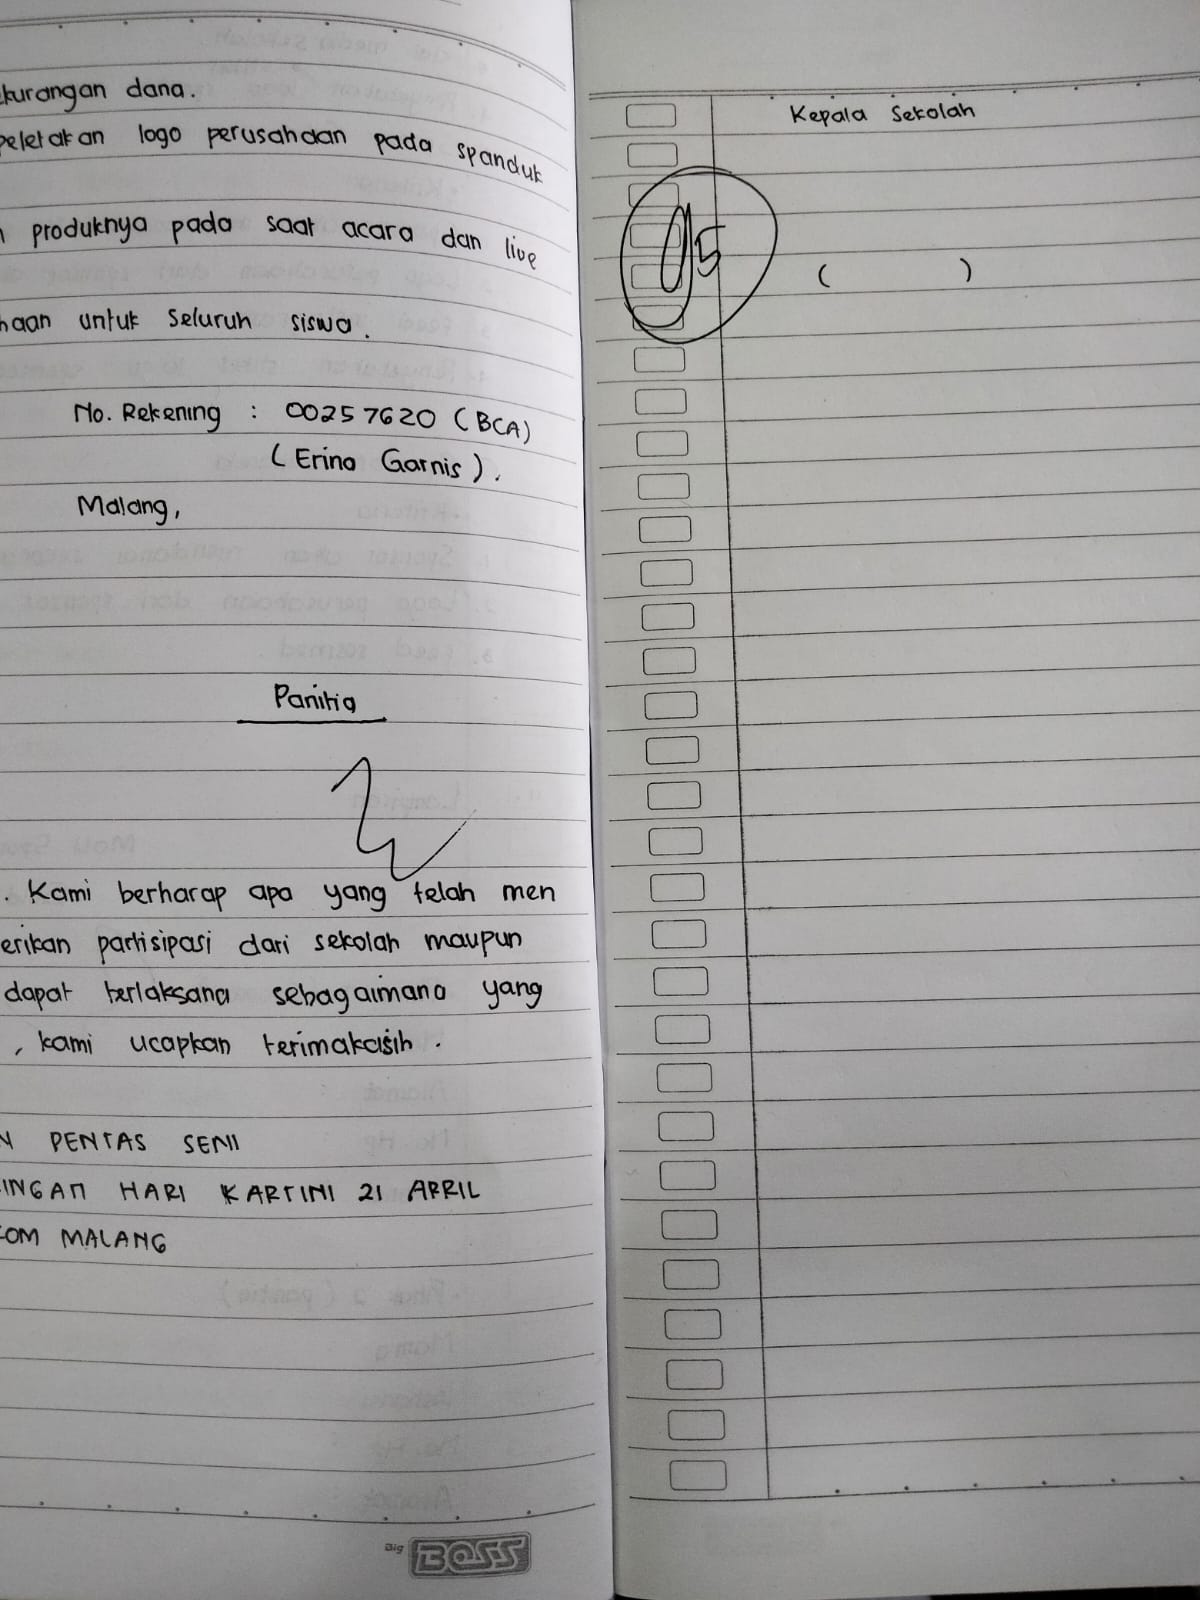 kurangan dana.
peletakan logo perusahaan pada spanduk
produknya pada saat acara dan live
haan untuk seluruh siswa.
No. Rekening : 00257620 (BCA)
(Erina Garnis).
Malang,
Panitia
. Kami berharap apa yang telah men
erikan partisipasi dari sekolah maupun
dapat terlaksana sebagaimana yang
, kami ucapkan terimakasih.
N PENTAS SENI
INGAN HARI KARTINI 21 APRIL
COM MALANG
Big BOSS
Kepala Sekolah
95
( )